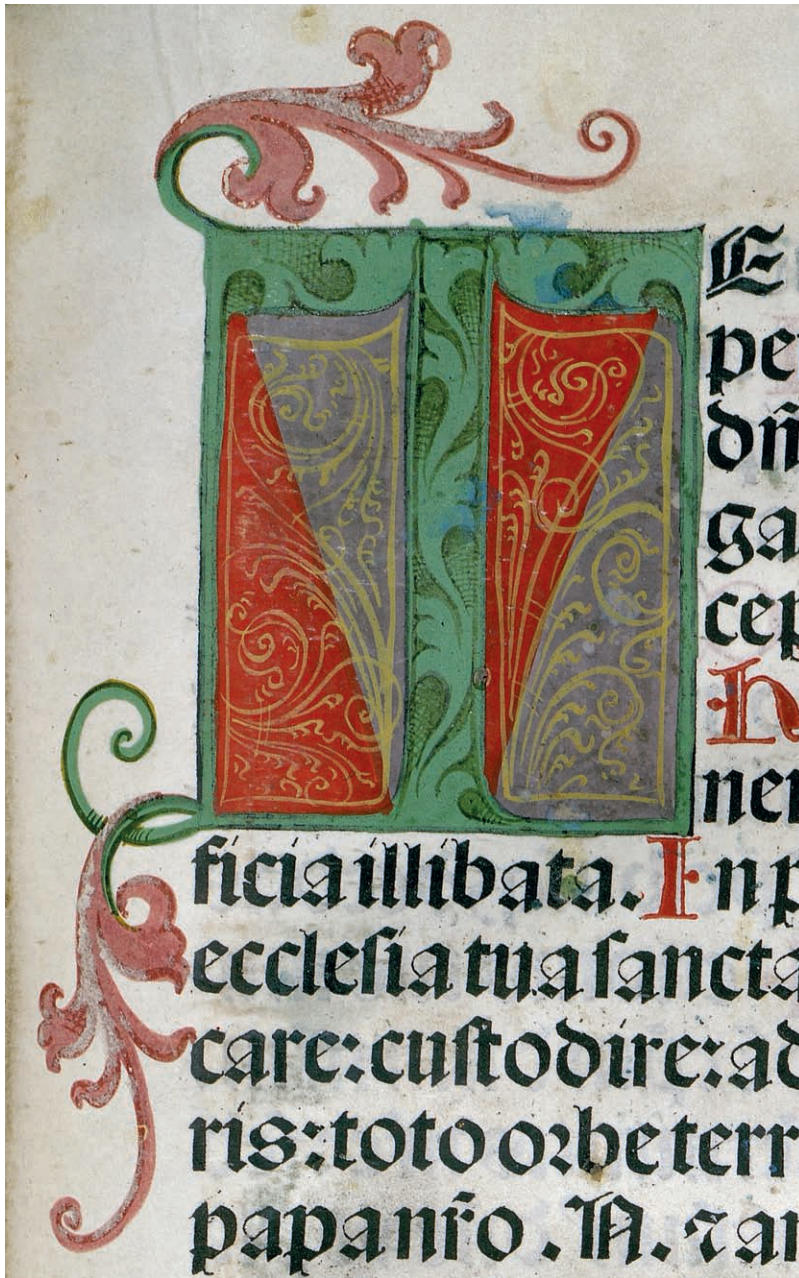 TE
pe
dn̄
ga
cep
h
ner
ficia illibata. In p
ecclesia tua sancta
care: custodire: ad
ris: toto orbe terr
papa nr̄o. N. ⁊ an